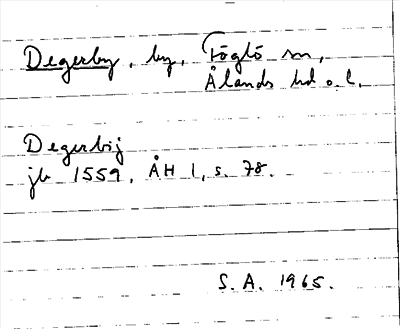 Degerby, by, Föglö sn,
Ålands hd o. l.
Degerbij
jb 1559. ÅH 1, s. 78.
S. A. 1965.